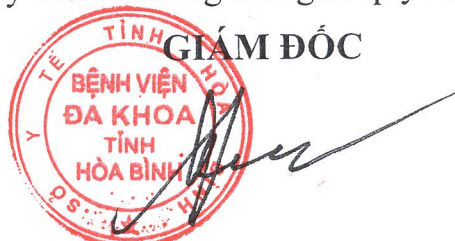 GIÁM ĐỐC
SỞ Y TẾ TỈNH HÒA BÌNH
BỆNH VIỆN
ĐA KHOA
TỈNH
HÒA BÌNH